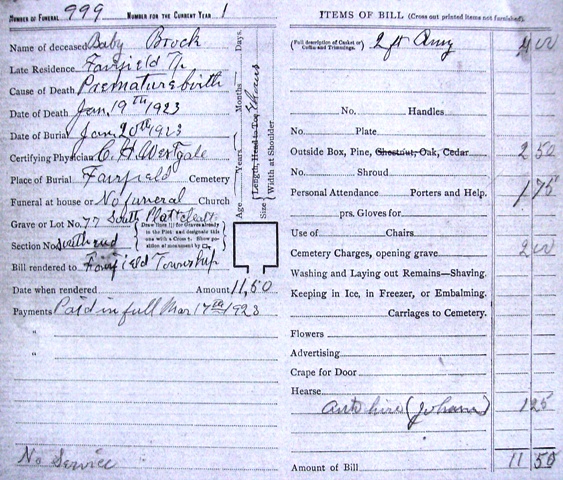 NUMBER OF FUNERAL 999 NUMBER FOR THE CURRENT YEAR 1
Name of deceased Baby Brock
Late Residence Fairfield Tp
Cause of Death Premature birth
Date of Death Jan. 19th 1923
Date of Burial Jan 20th 1923
Certifying Physician C. H. Westgate
Place of Burial Fairfield Cemetery
Funeral at house or No funeral Church
Grave or Lot No. 77 South Platt
Section No. South end
Draw lines for Graves already in the Plot and designate this one with a Cross †. Show position of monument by
Bill rendered to Fairfield Township
Date when rendered Amount 11,50
Payments Paid in full Mar 17th 1923
"
"
No Service
Age Years Months Days.
Size Length, Head to Toe
Width at Shoulder
ITEMS OF BILL (Cross out printed items not furnished)
(Full description of Casket or Coffin and Trimmings. 2 ft 4 00
No. Handles
No. Plate
Outside Box, Pine, Chestnut, Oak, Cedar 2 50
No. Shroud
Personal Attendance Porters and Help. 1 75
prs. Gloves for
Use of Chairs
Cemetery Charges, opening grave 2 00
Washing and Laying out Remains—Shaving.
Keeping in Ice, in Freezer, or Embalming.
Carriages to Cemetery.
Flowers
Advertising
Crape for Door
Hearse
Auto hire 1 25
Amount of Bill 11 50